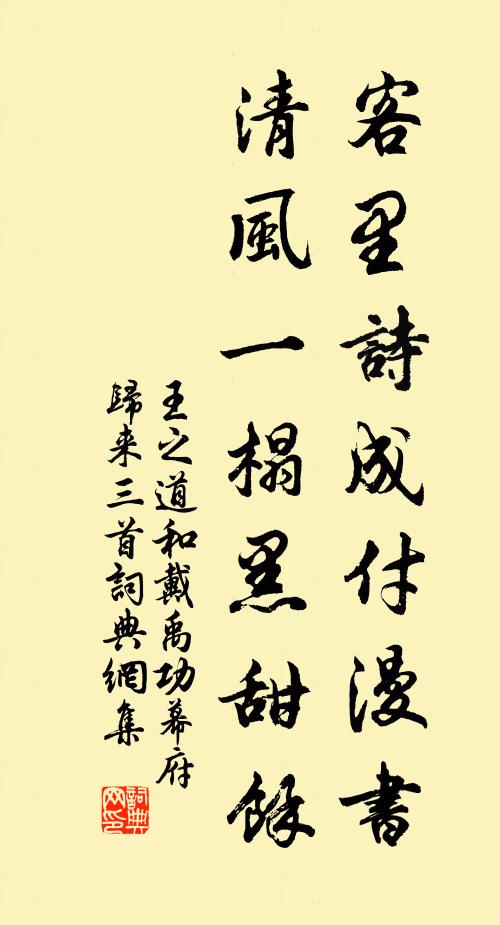 客里詩成付漫書
清風一榻黑甜餘
王之道和戴禹功幕府
歸来三首詞典網集
詞典網印